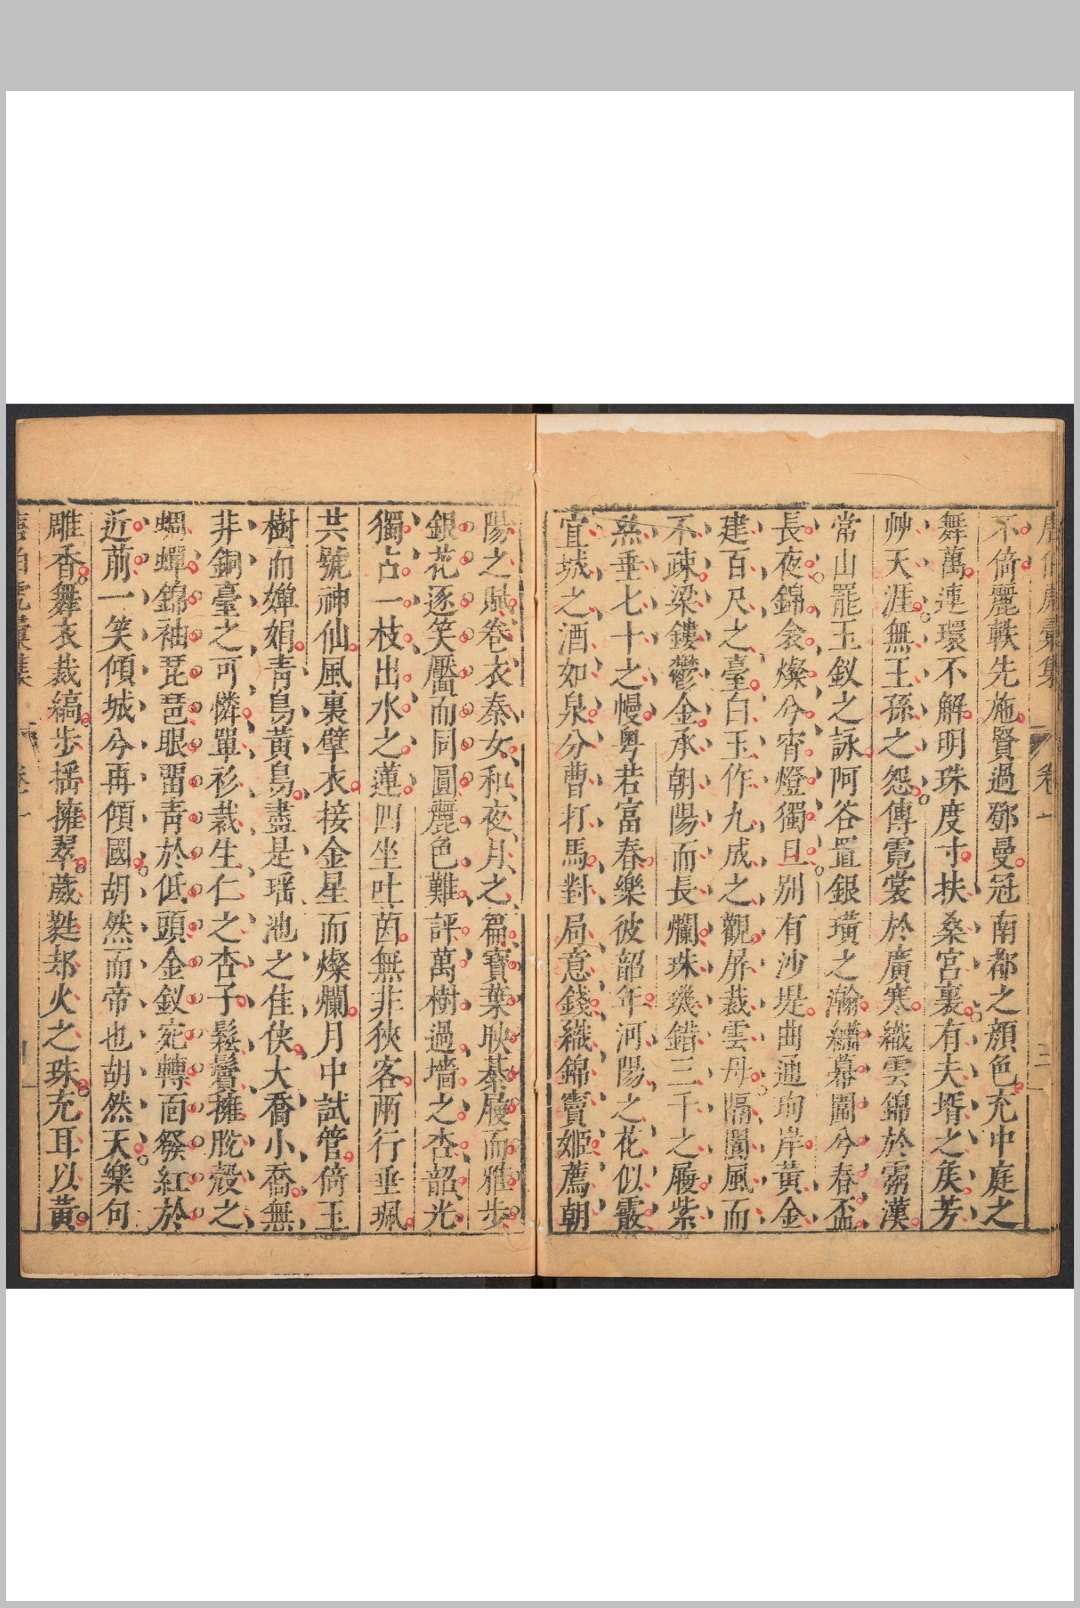 唐伯虎彙集 卷一 三
不倚麗軼先施賢過鄧曼冠南都之顔色充中庭之
舞萬連環不解明珠度寸扶桑宮裏有夫壻之矦芳
艸天涯無王孫之怨傳霓裳於廣寒織雲錦於霧漢
常山罷玉釵之詠阿谷置銀璜之瀚繡幕闢兮春盃
長夜錦衾燦兮宵燈獨旦别有沙堤曲通珣岸黃金
建百尺之臺白玉作九成之觀屏裁雲母隔閬風而
不疎梁鏤鬱金承朝陽而長爛珠璣錯三千之屨紫
㷫垂七十之幔粤若富春樂彼韶年河陽之花似霰
宜城之酒如泉分曹打馬對局意錢織錦竇姬薦朝
陽之賦卷衣秦女和夜月之篇寶葉映綦屨而雅步
銀花逐笑靨而同圓麗色難評萬樹過墻之杏韶光
獨占一枝出水之蓮四坐吐茵無非狹客兩行垂珮
共號神仙風裏擘衣接金星而燦爛月中試管倚玉
樹而嬋娟靑鳥黃鳥盡是瑶池之佳俠大喬小喬無
非銅臺之可憐單衫裁生仁之杏子鬆鬢擁脫殻之
蜩蟬錦袖琵琶眼畱靑於低頭金釵宛轉面發紅於
近前一笑傾城兮再傾國胡然而帝也胡然天樂句
雕香舞衣裁縞步揺擁翠葳甤郟火之珠充耳以黃
唐伯虎彙集 卷一